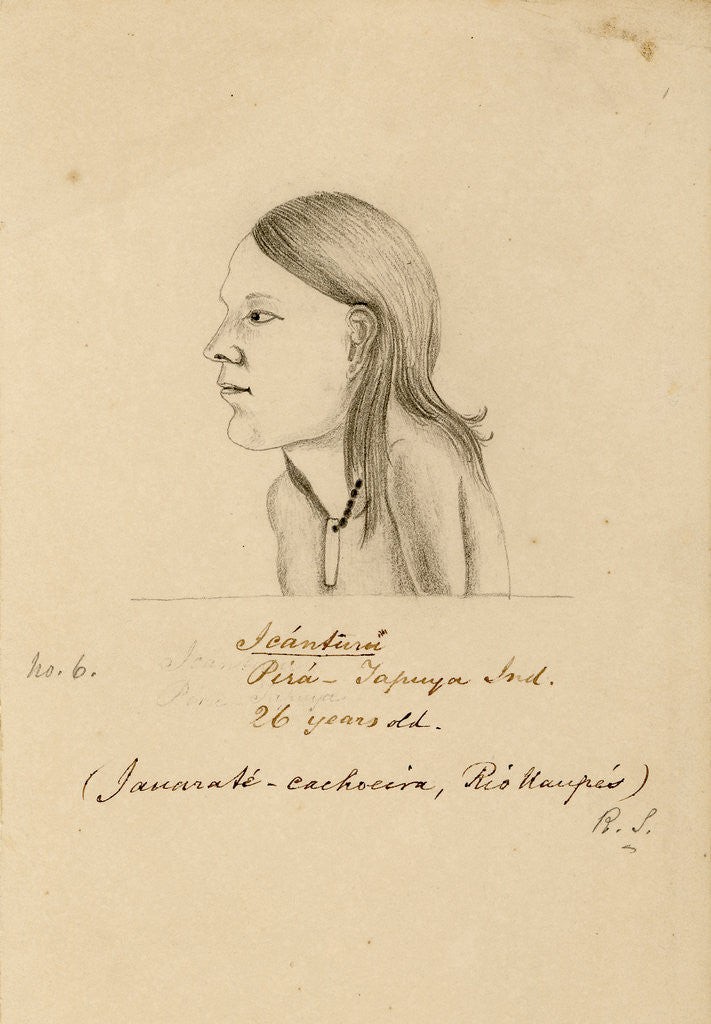 Icánturú
no. 6.
Pirá - Tapuya Ind.
26 years old.
(Jauaraté - cachoeira, Rio Uaupés)
R. S.